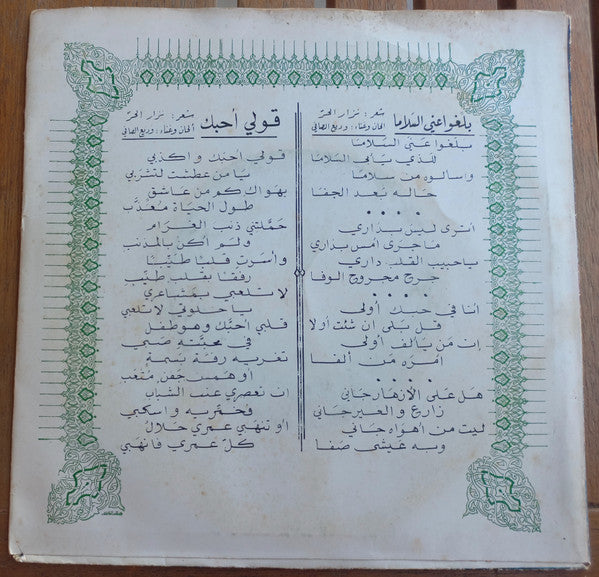 بلغوا عني السلاما
شعر: نزار الحر
الحان وغناء: وديع الصافي
بلغوا عني السلاما
للذي يأبى السلاما
واسألوه من سلاما
حاله بعد الجفا
أترى ليس بداري
ما جرى أمس بداري
يا حبيب القلب داري
جرح مجروح الوفا
أنا في حبك أولى
قل بلى ان شئت أو لا
إن من يألف أولى
امره من ألفا
هل على الأزهار جاني
زارع والغير جاني
ليت من أهواه جاني
وبه عيشي صفا
قولي أحبك
شعر: نزار الحر
الحان وغناء: وديع الصافي
قولي احبك واكذبي
يا من عطشت لتشربي
بهواك كم من عاشق
طول الحياة معذب
حملتني ذنب الغرام
ولم أكن بالمذنب
وأسرت قلبا طيبا
رفقا بقلب طيب
لا تلعبي بمشاعري
يا حلوتي لا تلعبي
قلبي احبك وهو طفل
في محبته صبي
تغريه رفة بسمة
أو همس جفن متعب
ان تعصري عنب الشباب
وخمريه واسكبي
أو تنهبي عمري حلال
كل عمري فانهبي